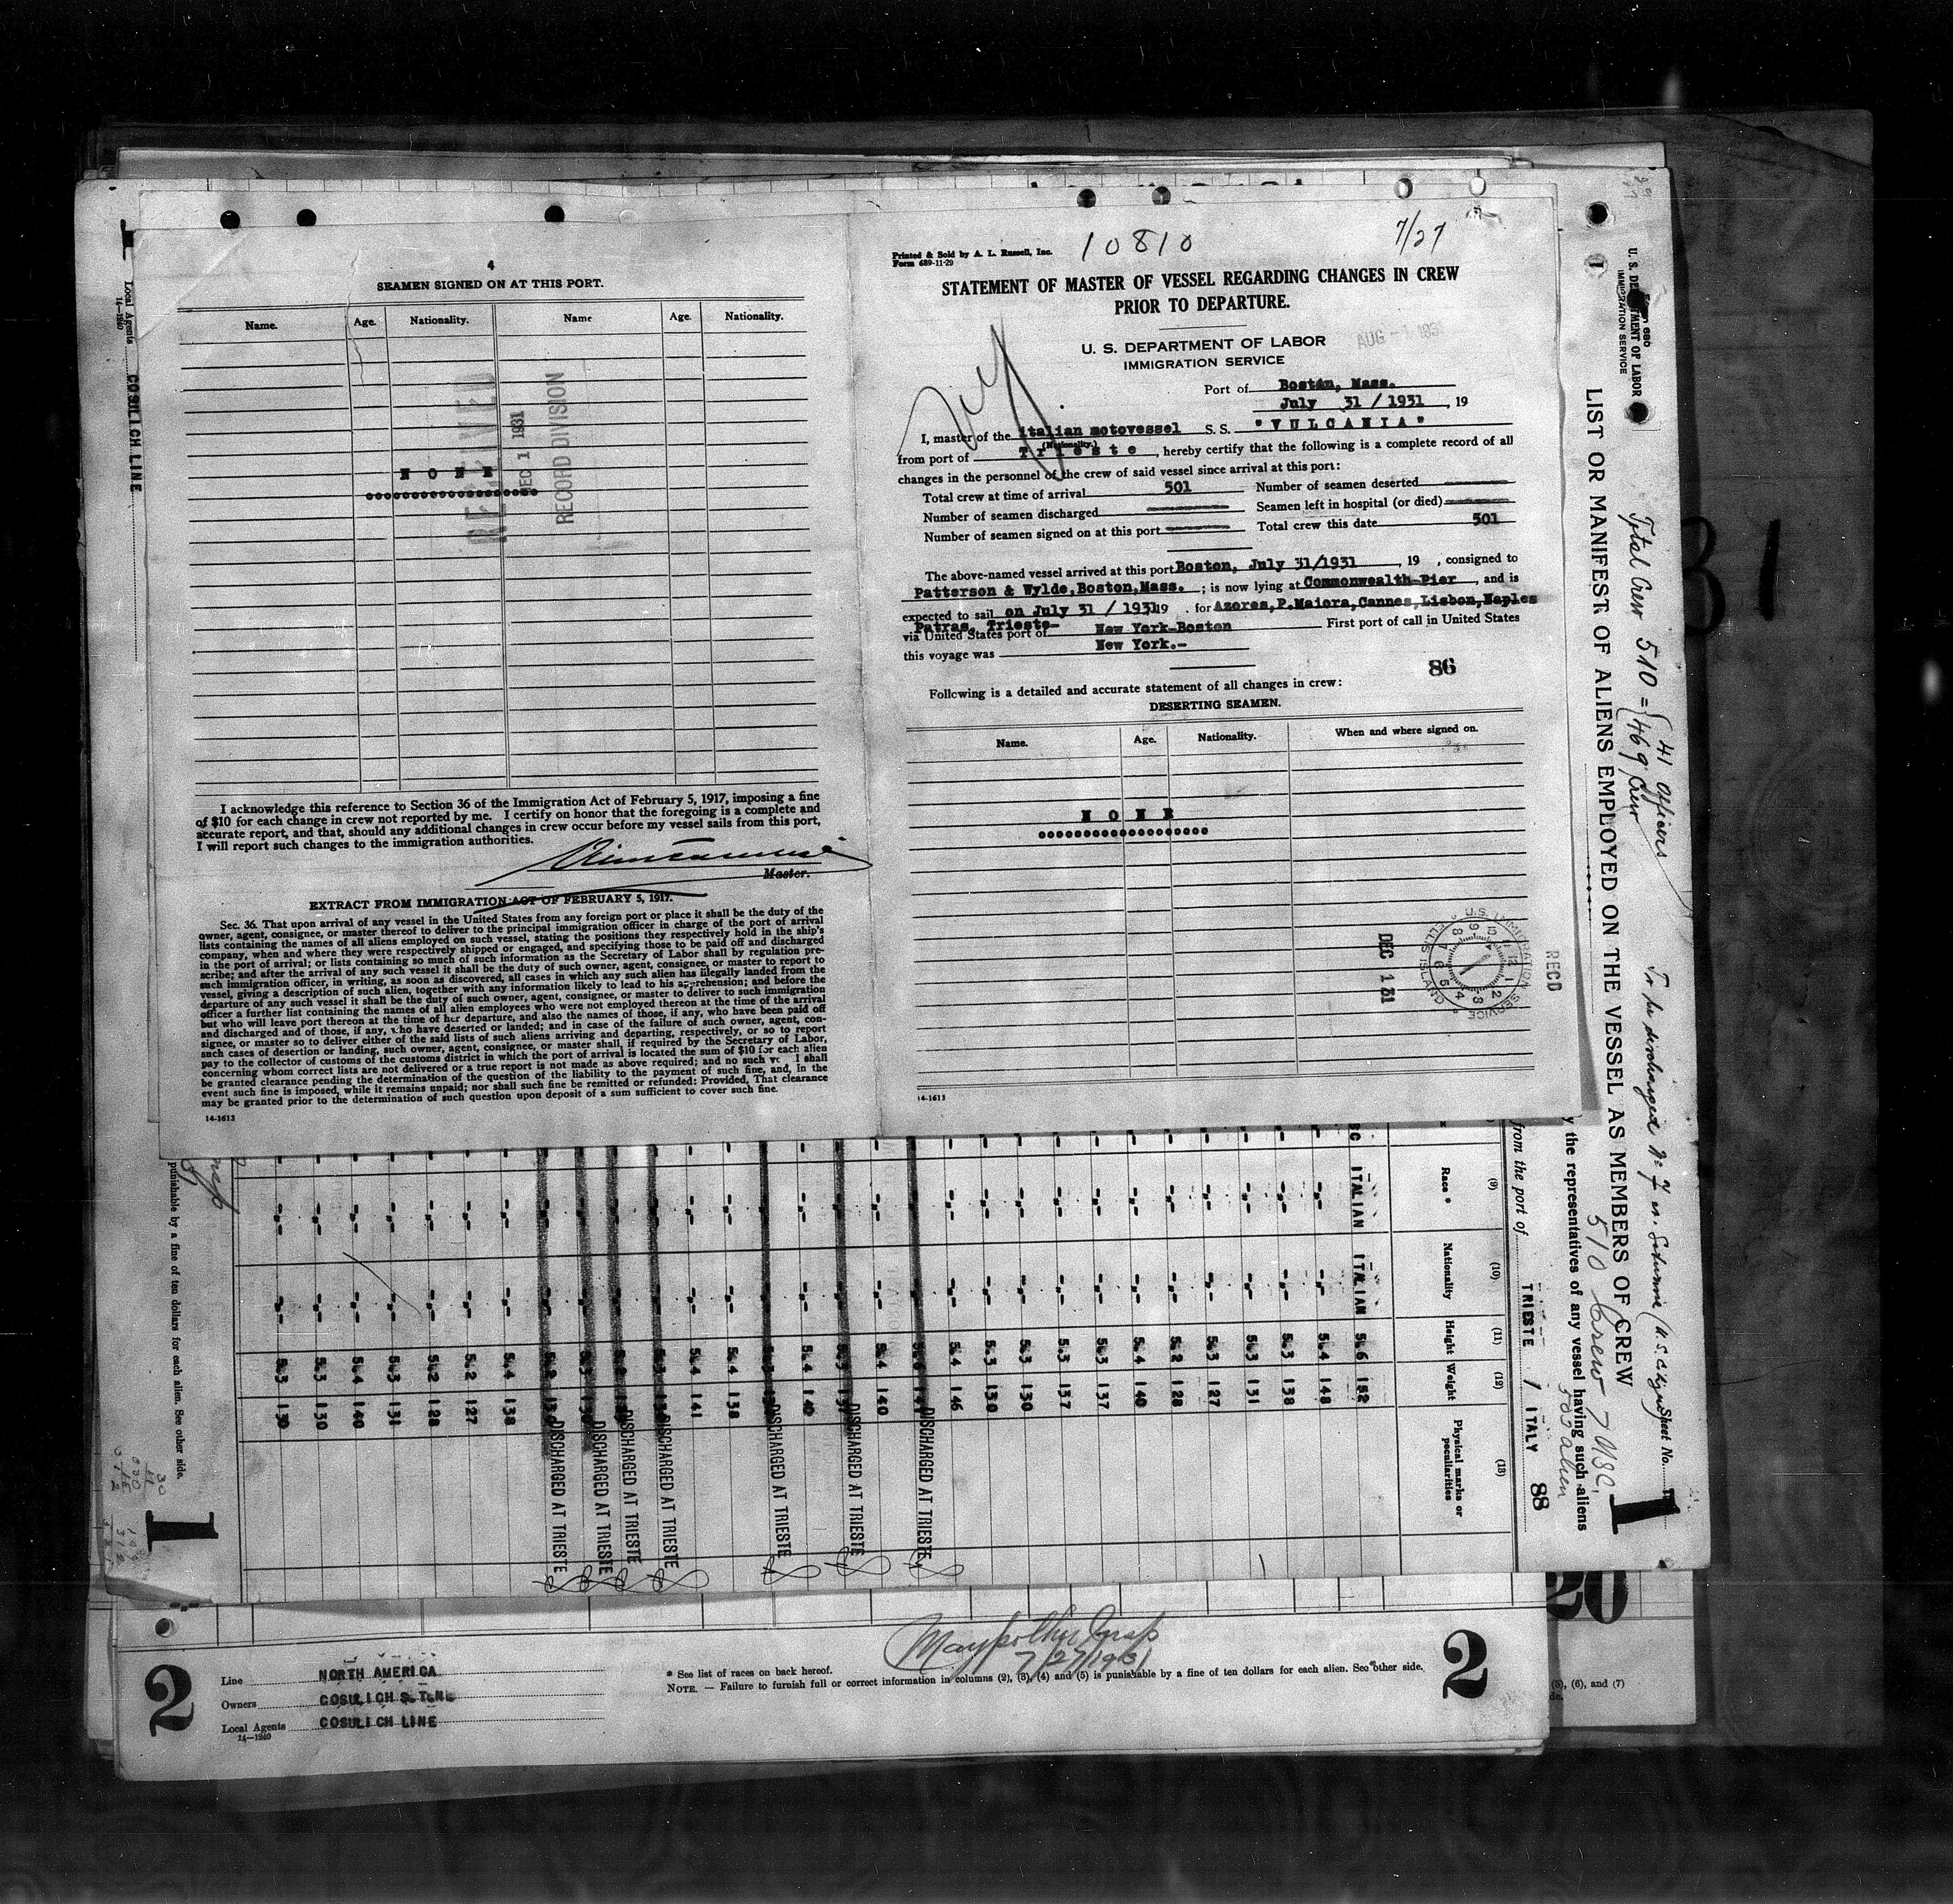 4
SEAMEN SIGNED ON AT THIS PORT.
Name. Age. Nationality. Name Age. Nationality.
NONE
RECEIVED
DEC 1 1931
RECORD DIVISION
I acknowledge this reference to Section 36 of the Immigration Act of February 5, 1917, imposing a fine
of $10 for each change in crew not reported by me. I certify on honor that the foregoing is a complete and
accurate report, and that, should any additional changes in crew occur before my vessel sails from this port,
I will report such changes to the immigration authorities.
Master.
EXTRACT FROM IMMIGRATION ACT OF FEBRUARY 5, 1917.
Sec. 36. That upon arrival of any vessel in the United States from any foreign port or place it shall be the duty of the
owner, agent, consignee, or master thereof to deliver to the principal immigration officer in charge of the port of arrival
lists containing the names of all aliens employed on such vessel, stating the positions they respectively hold in the ship's
company, when and where they were respectively shipped or engaged, and specifying those to be paid off and discharged
in the port of arrival; or lists containing so much of such information as the Secretary of Labor shall by regulation pre-
scribe; and after the arrival of any such vessel it shall be the duty of such owner, agent, consignee, or master to report to
such immigration officer, in writing, as soon as discovered, all cases in which any such alien has illegally landed from the
vessel, giving a description of such alien, together with any information likely to lead to his apprehension; and before the
departure of any such vessel it shall be the duty of such owner, agent, consignee, or master to deliver to such immigration
officer a further list containing the names of all alien employees who were not employed thereon at the time of the arrival
but who will leave port thereon at the time of her departure, and also the names of those, if any, who have been paid off
and discharged and of those, if any, who have deserted or landed; and in case of the failure of such owner, agent, con-
signee, or master so to deliver either of the said lists of such aliens arriving and departing, respectively, or so to report
such cases of desertion or landing, such owner, agent, consignee, or master shall, if required by the Secretary of Labor,
pay to the collector of customs of the customs district in which the port of arrival is located the sum of $10 for each alien
concerning whom correct lists are not delivered or a true report is not made as above required; and no such ve l shall
be granted clearance pending the determination of the question of the liability to the payment of such fine, and, in the
event such fine is imposed, while it remains unpaid; nor shall such fine be remitted or refunded: Provided, That clearance
may be granted prior to the determination of such question upon deposit of a sum sufficient to cover such fine.
14-1613
Printed & Sold by A. L. Russell, Inc.
Form 689-11-29
10810
7/27
STATEMENT OF MASTER OF VESSEL REGARDING CHANGES IN CREW
PRIOR TO DEPARTURE.
U. S. DEPARTMENT OF LABOR
IMMIGRATION SERVICE
AUG -1 193
Port of Boston, Mass.
July 31 / 1931, 19
I, master of the italian motovessel S. S. "VULCANIA"
(Nationality.)
from port of Trieste, hereby certify that the following is a complete record of all
changes in the personnel of the crew of said vessel since arrival at this port:
Total crew at time of arrival 501 Number of seamen deserted
Number of seamen discharged Seamen left in hospital (or died)
Number of seamen signed on at this port Total crew this date 501
The above-named vessel arrived at this port Boston, July 31/1931, 19 , consigned to
Patterson & Wylde, Boston, Mass. ; is now lying at Commonwealth Pier, and is
expected to sail on July 31 / 1931 19 . for Azores, P.Maiora, Cannes, Lisbon, Naples
Patras, Trieste-
via United States port of New York-Boston First port of call in United States
this voyage was New York.-
86
Following is a detailed and accurate statement of all changes in crew:
DESERTING SEAMEN.
Name. Age. Nationality. When and where signed on.
NONE
U.S. IMMIGRATION SERVICE
ELLIS ISLAND
DEC 1 31
RECD
14-1613
1
Local Agents COSULICH LINE
14-1240
Form 680
U. S. DEPARTMENT OF LABOR
IMMIGRATION SERVICE
Total Crew 510 = 41 Officers
469 Crew
LIST OR MANIFEST OF ALIENS EMPLOYED ON THE VESSEL AS MEMBERS OF CREW
Sheet No. 1
510 Crew 7 USC.
503 alien
y the representatives of any vessel having such aliens
from the port of TRIESTE / ITALY 88
(9) (10) (11) (12) (13)
Race * Nationality Height Weight Physical marks or peculiarities
ITALIAN ITALIAN 5.6 152
5.4 148
5.3 138
5.3 131
5.3 127
5.2 128
5.4 140
5.3 137
5.3 137
5.3 130
5.3 130
5.4 146
DISCHARGED AT TRIESTE
5.4 140
DISCHARGED AT TRIESTE
5.4 140
DISCHARGED AT TRIESTE
5.4 138
5.4 141
DISCHARGED AT TRIESTE
DISCHARGED AT TRIESTE
DISCHARGED AT TRIESTE
DISCHARGED AT TRIESTE
5.4 138
5.2 127
5.2 128
5.3 131
5.4 140
5.3 130
5.3 130
punishable by a fine of ten dollars for each alien. See other side.
1
31
20
(5), (6), and (7)
2
Line NORTH AMERICA
Owners COSULICH S.T.N.
Local Agents COSULICH LINE
14-1240
7/27/1931
* See list of races on back hereof.
NOTE. — Failure to furnish full or correct information in columns (2), (3), (4) and (5) is punishable by a fine of ten dollars for each alien. See other side.
2